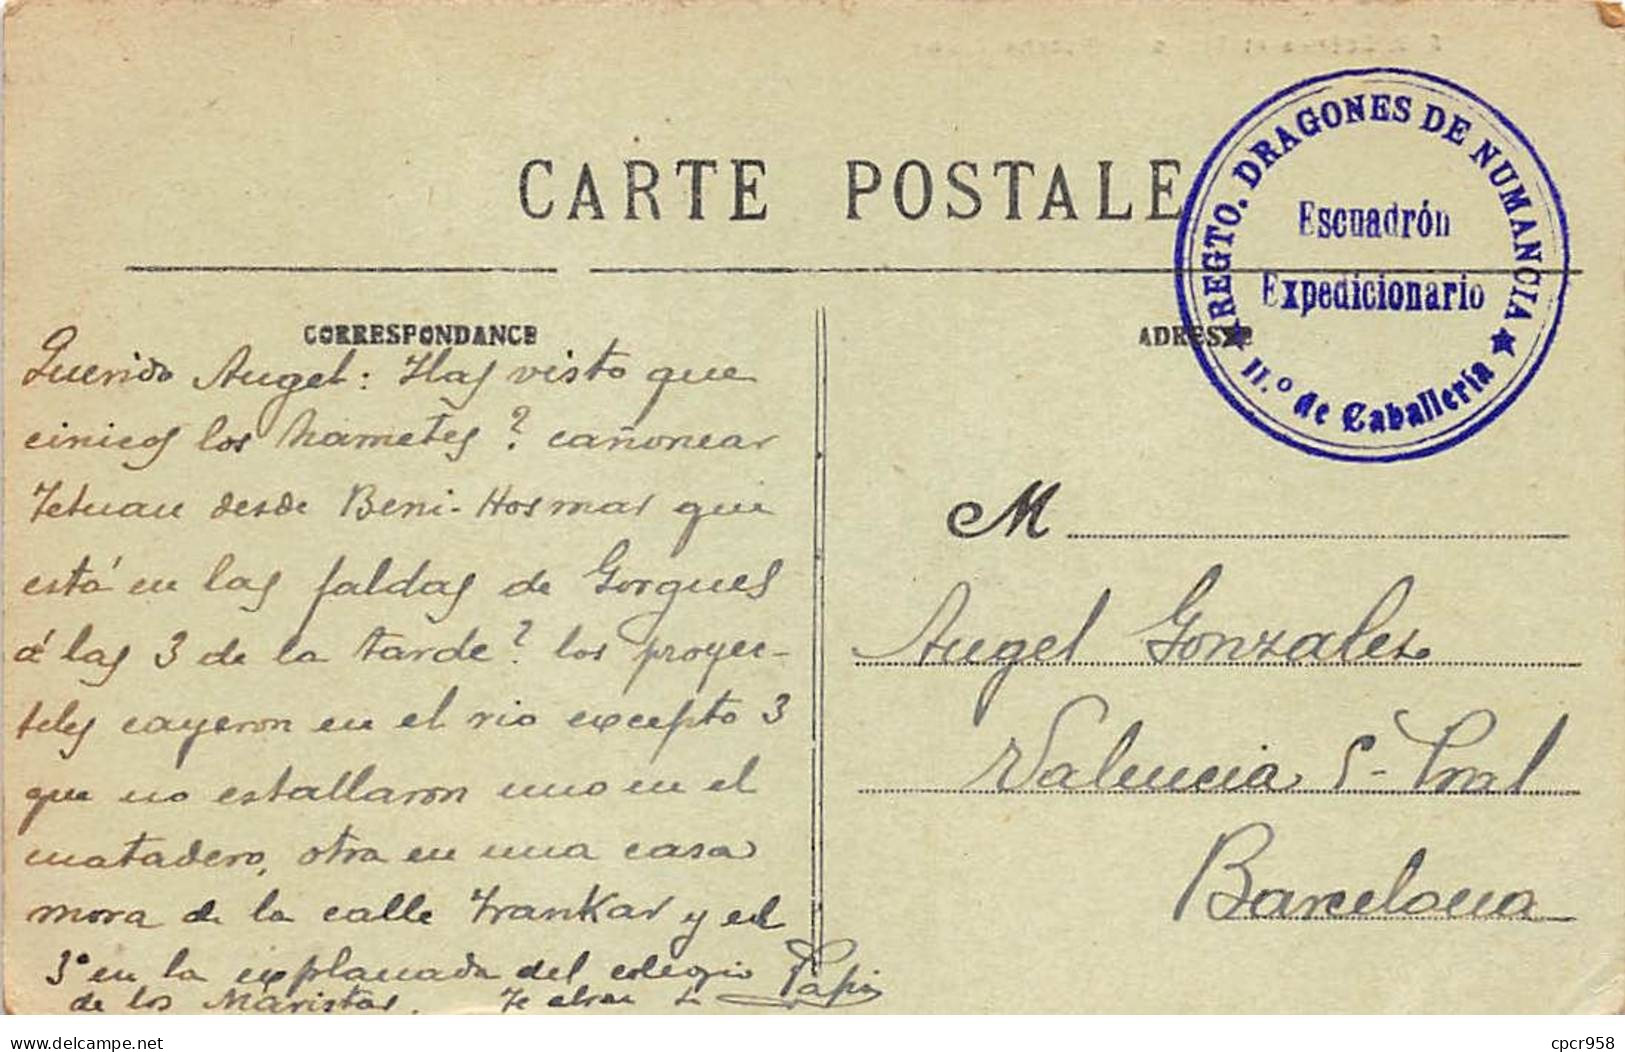 CARTE POSTALE
REGTO. DRAGONES DE NUMANCIA
Escuadrón
Expedicionario
★ 11.º de Caballería ★
CORRESPONDANCE
Querido Angel: Has visto que
cinicos los hametes? cañonear
Tetuan desde Beni-Hosmar que
está en las faldas de Gorgues
á las 3 de la tarde? los proyec-
tiles cayeron en el rio excepto 3
que no estallaron uno en el
matadero, otro en una casa
mora de la calle Trankar y el
3º en la explanada del colegio
de los Maristas. Te abraza
Papá
ADRESSE
M
Angel Gonzalez
Valencia 5- Pral
Barcelona
delcampe.net
cpcr958